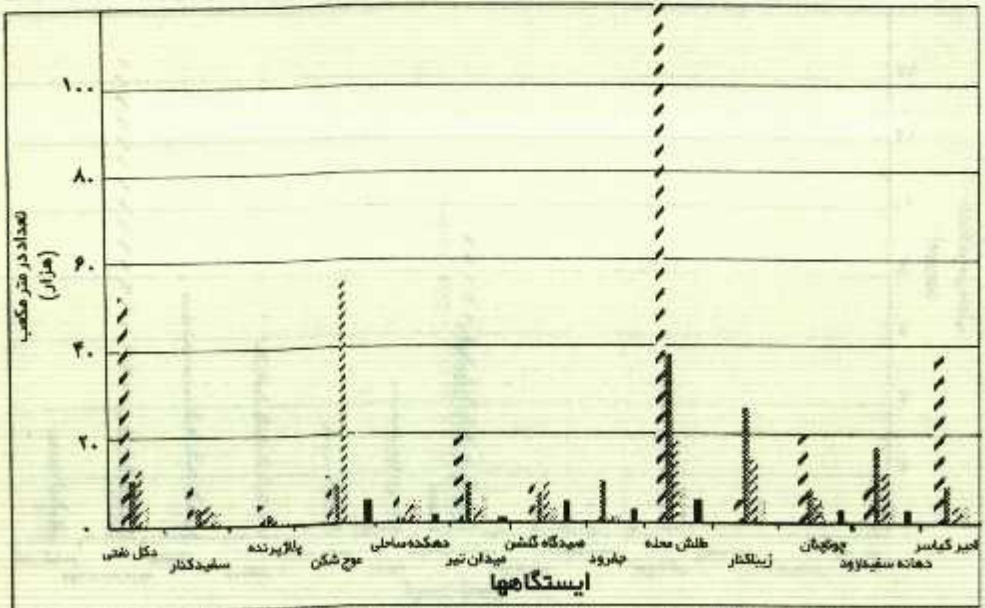 تعداد در متر مکعب
(هزار)
۱۰۰
۸۰
۶۰
۴۰
۲۰
۰
دکل نفتی
سفیدکنار
پلاژ پرنده
موج شکن
دهکده ساحلی
میدان تیر
صیدگاه گلشن
جفرود
طالش محله
زیباکنار
چونچنان
دهانه سفیدرود
امیر کیاسر
ایستگاهها